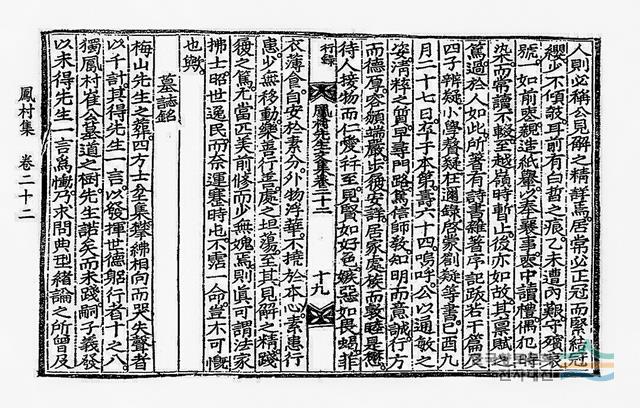 人則必稱公見解之精詳焉居常必正冠而緊結冠
纓少不傾攲耳前有白晢之痕乙未遭內艱守殯哀
號一如前喪親造紙轝奉襄事喪中讀禮偶犯
染而常讀不輟至越嶺時暫止後亦如故其稟賦之
篤過於人如此所著有詩書雜著序記跋若干篇及
四子辨疑小學疑邇錄啓蒙劄疑等書己酉九
月二十七日卒于本第壽六十四嗚呼公以通敏之
姿淸粹之質早專門路篤信師敎知明而意誠行方
而德厚容顔端嚴步履安詳居家處族而敦睦是懋
待人接物而仁愛至見賢如好色嫉惡如畏蝎菲
行錄 鳳村先生文集卷二十二 十九
衣薄食自安於素分外物浮華不撓於本心素患行
患少無移動樂善行善處之坦蕩至其見解之精踐
履之篤尤當匹美前修而少無愧焉則眞可謂法家
拂士昭世逸民而奈運蹇時也不霑一命豈不可慨
也歟
墓誌銘
梅山先生之葬四方士坌集攀紼相向而哭失聲者
以千計其得先生一言以發揮世德躬行者十之八
獨鳳村崔公墓道之樹先生諾矣而未踐嗣子義發
以未得先生一言爲慟乃求問典型緒論之所曾及
鳳村集 卷二十二